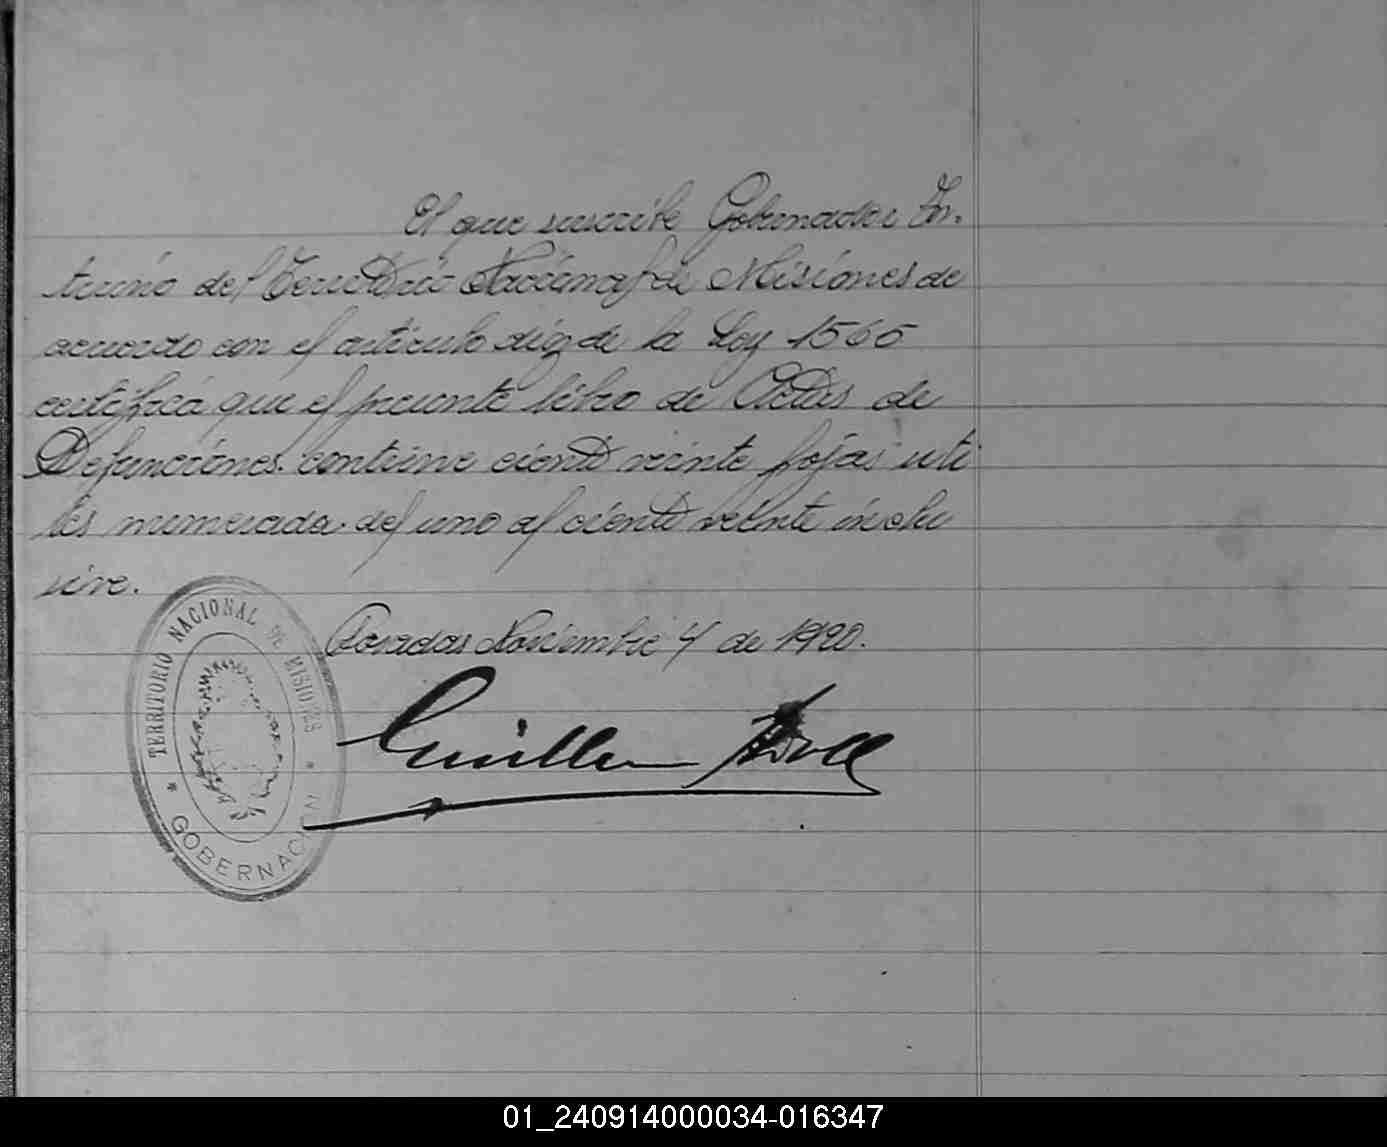 El que suscribe Gobernador In-
terino del Territorio Nacional de Misiones de
acuerdo con el artículo diez de la Ley 1565
certifica que el presente libro de Actas de
Defunciones contiene ciento veinte fojas uti
les numeradas del uno al ciento veinte inclu
sive.
Posadas Noviembre 4 de 1920.
TERRITORIO NACIONAL DE MISIONES
* GOBERNACION *
01_240914000034-016347